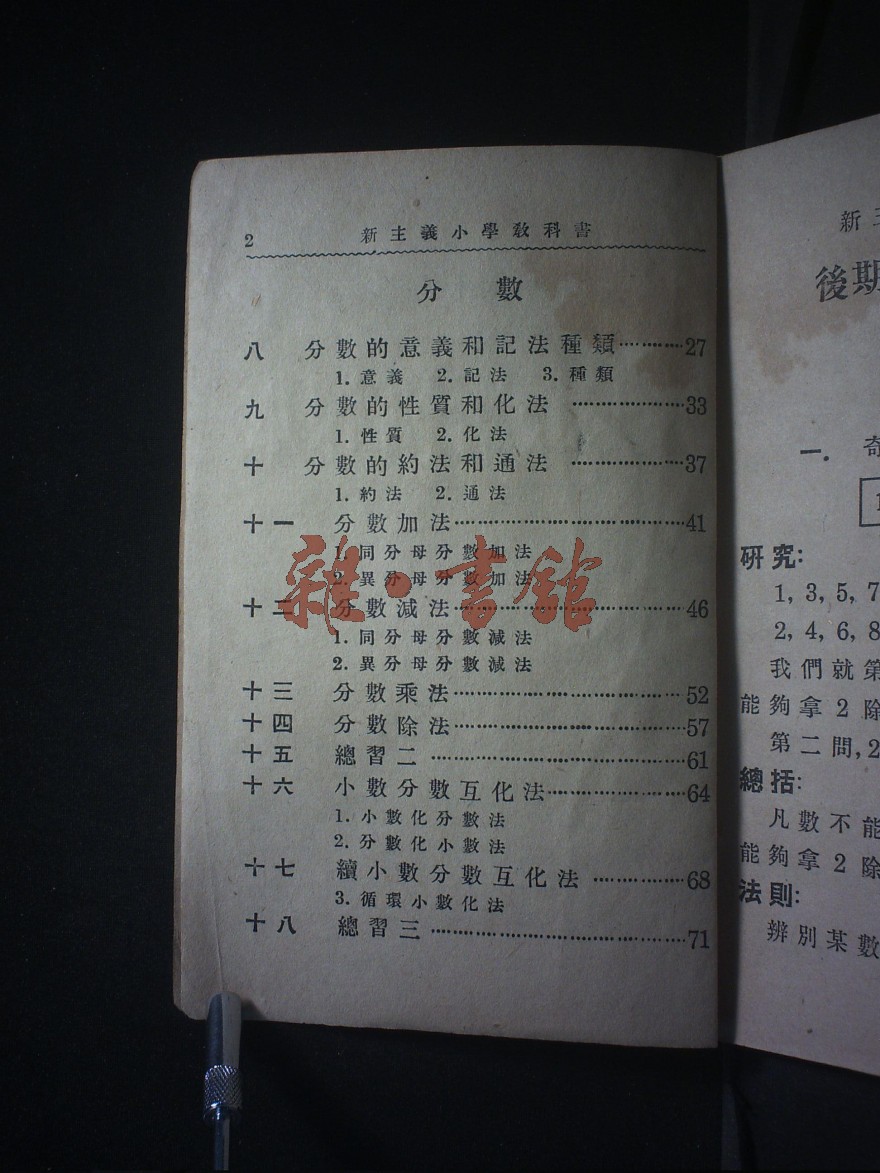 2 新主義小學教科書
分數
八 分數的意義和記法種類…………27
1.意義 2.記法 3.種類
九 分數的性質和化法…………33
1.性質 2.化法
十 分數的約法和通法…………37
1.約法 2.通法
十一 分數加法…………41
1.同分母分數加法
2.異分母分數加法
十二 分數減法…………46
1.同分母分數減法
2.異分母分數減法
十三 分數乘法…………52
十四 分數除法…………57
十五 總習二…………61
十六 小數分數互化法…………64
1.小數化分數法
2.分數化小數法
十七 續小數分數互化法…………68
3.循環小數化法
十八 總習三…………71
雜·書館
新主
後期
一. 奇
1
研究:
1, 3, 5, 7
2, 4, 6, 8
我們就第
能夠拿2除
第二問, 2
總括:
凡數不能
能夠拿2除
法則:
辨別某數